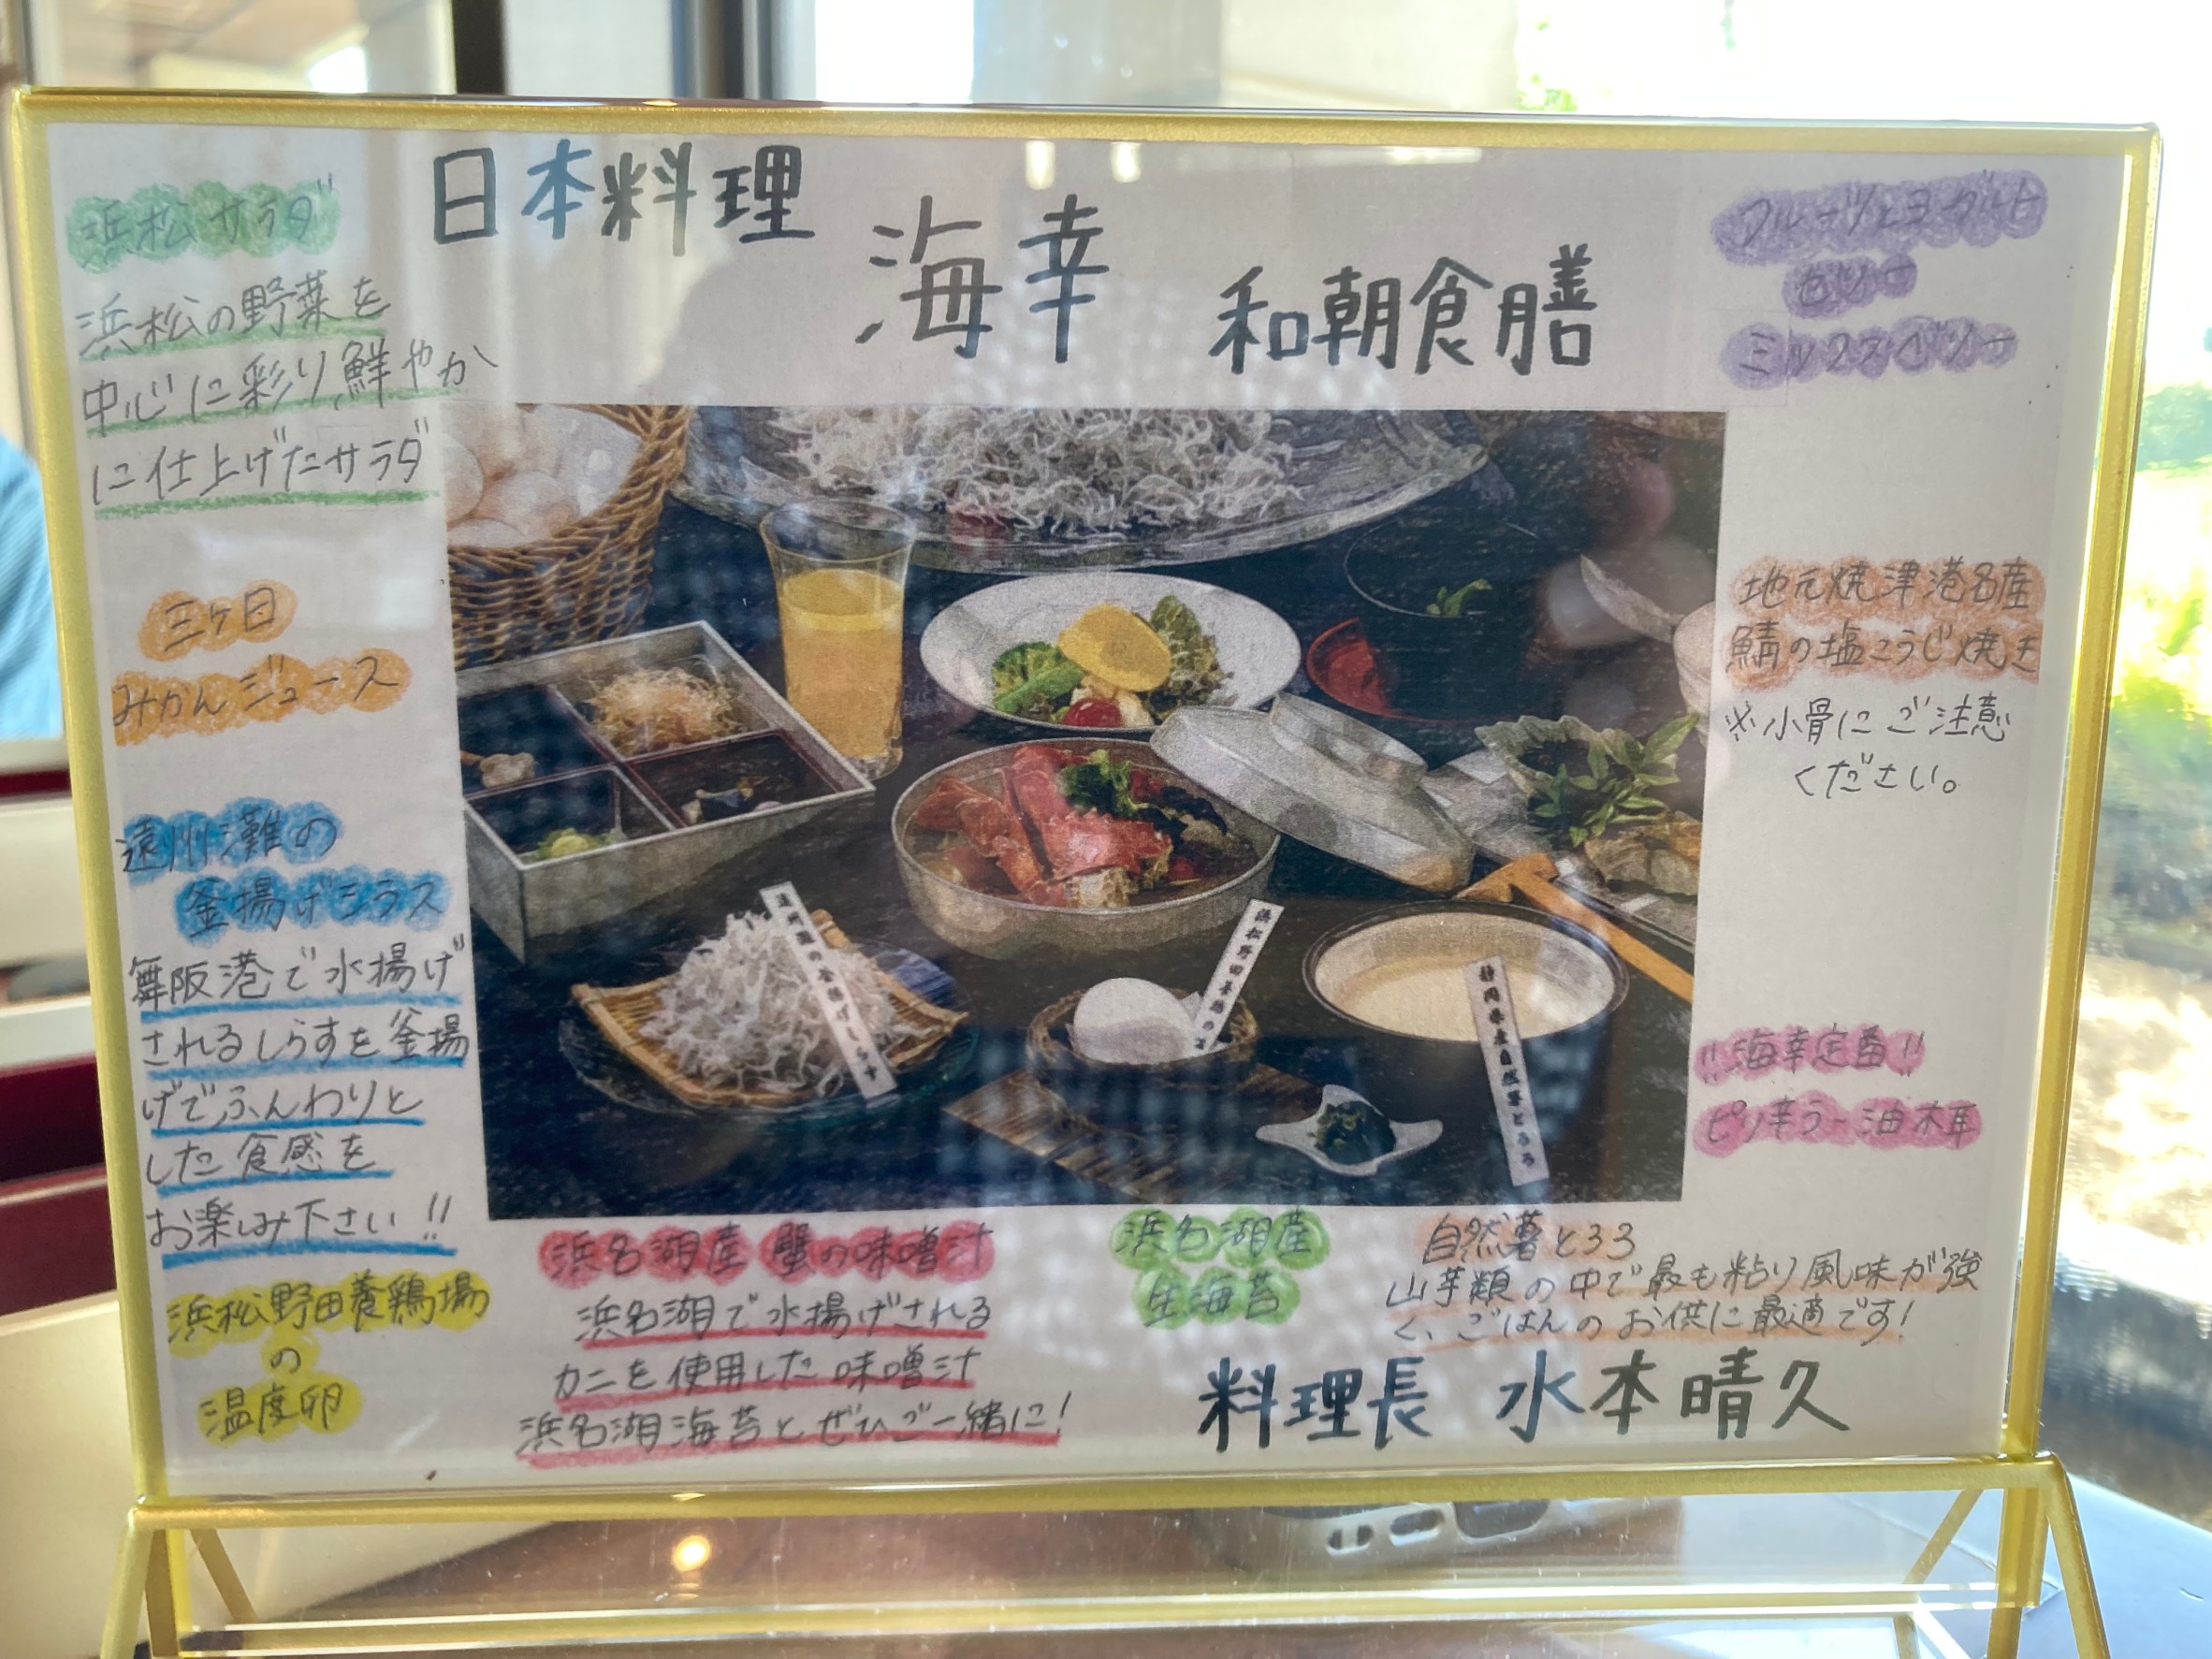 日本料理
海幸
和朝食膳
浜松サラダ
浜松の野菜を
中心に彩り鮮やか
に仕上げたサラダ
三ヶ日
みかんジュース
遠州灘の
釜揚げシラス
舞阪港で水揚げ
されるしらすを釜揚
げでふんわりと
した食感を
お楽しみ下さい!!
浜松野田養鶏場
の
温度卵
フルーツとヨーグルト
ゼリー
ミックスベリー
地元焼津港名産
鯖の塩こうじ焼き
※小骨にご注意
ください。
!!海幸定番!!
ピリ辛ラー油木耳
遠州灘の釜揚げしらす
浜松野田養鶏の
静岡県産自然薯とろろ
浜名湖産 蟹の味噌汁
浜名湖で水揚げされる
カニを使用した味噌汁
浜名湖海苔とぜひご一緒に!
浜名湖産
生海苔
自然薯とろろ
山芋類の中で最も粘り風味が強
く、ごはんのお供に最適です!
料理長 水本晴久